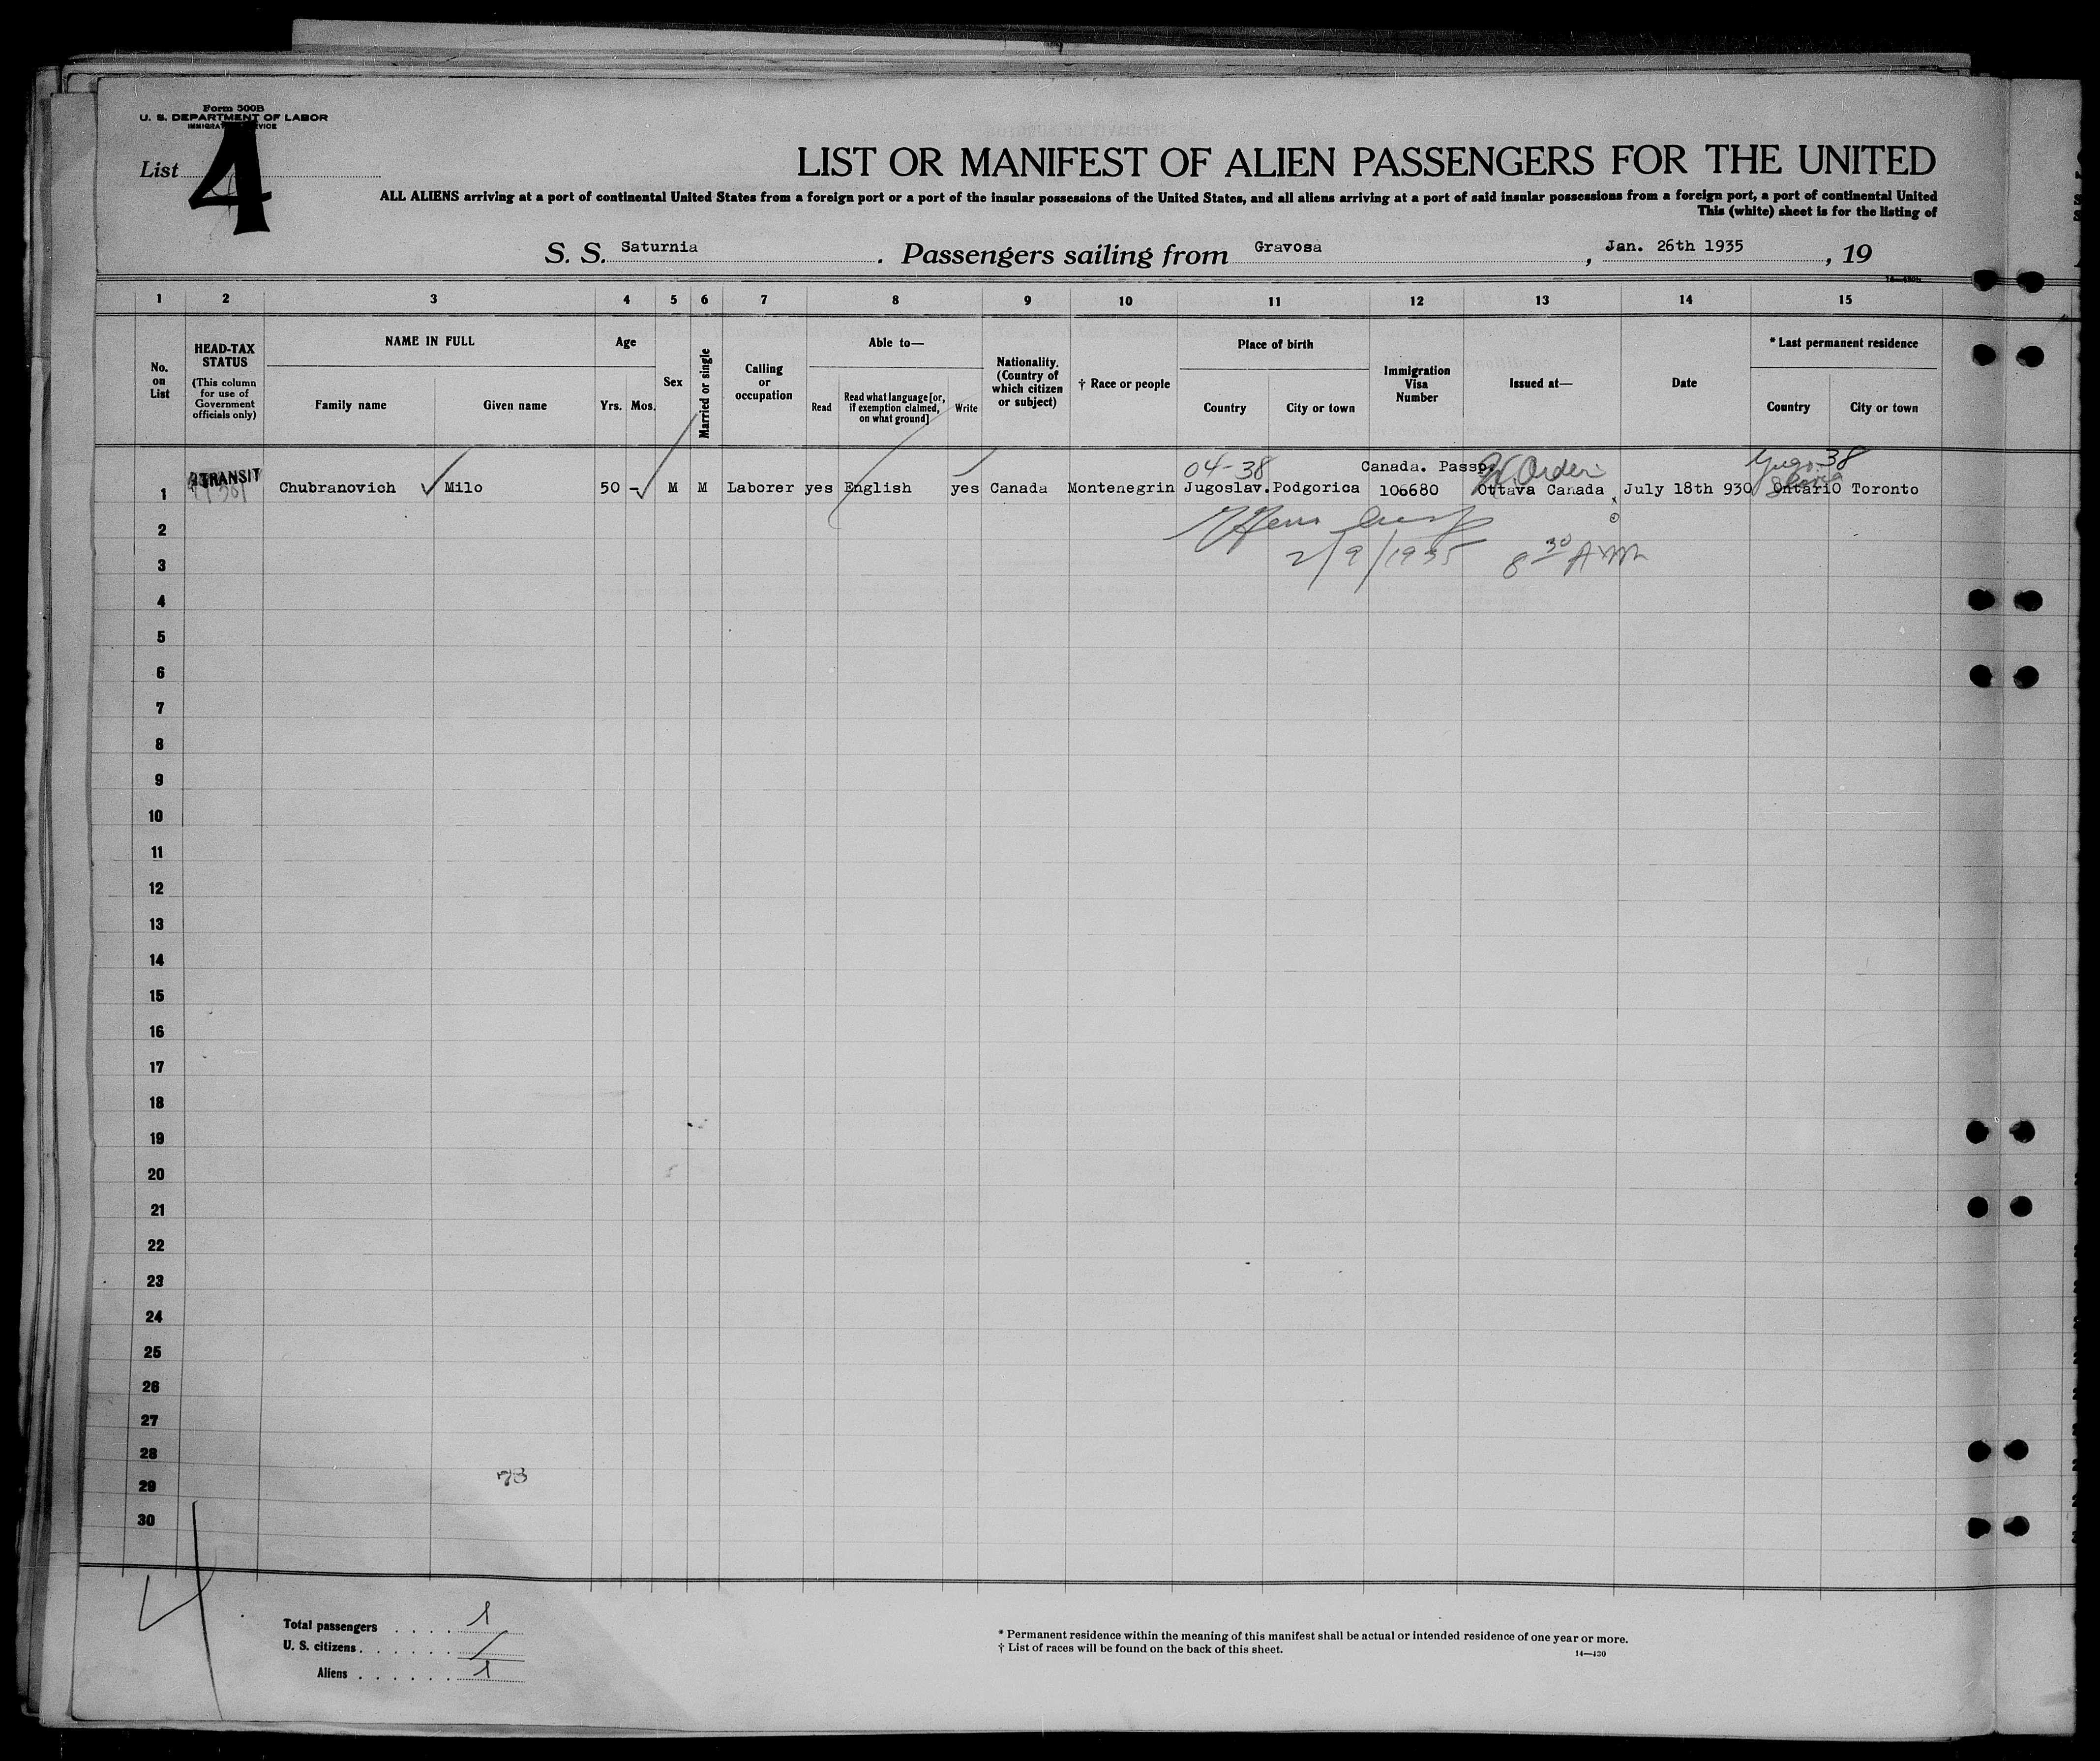 Form 500B
U. S. DEPARTMENT OF LABOR
IMMIGRATION SERVICE
List 4
LIST OR MANIFEST OF ALIEN PASSENGERS FOR THE UNITED
ALL ALIENS arriving at a port of continental United States from a foreign port or a port of the insular possessions of the United States, and all aliens arriving at a port of said insular possessions from a foreign port, a port of continental United
This (white) sheet is for the listing of
S. S. Saturnia . Passengers sailing from Gravosa , Jan. 26th 1935 , 19
1 2 3 4 5 6 7 8 9 10 11 12 13 14 15
No. on List
HEAD-TAX STATUS (This column for use of Government officials only)
NAME IN FULL
Family name Given name
Age
Yrs. Mos.
Sex
Married or single
Calling or occupation
Able to—
Read
Read what language [or, if exemption claimed, on what ground]
Write
Nationality. (Country of which citizen or subject)
† Race or people
Place of birth
Country City or town
Immigration Visa Number
Issued at—
Date
* Last permanent residence
Country City or town
04-38 Canada. Passp. Order Yugo 38
1 TRANSIT Chubranovich Milo 50 - M M Laborer yes English yes Canada Montenegrin Jugoslav. Podgorica 106680 Ottava Canada July 18th 930 Ontario Toronto
2
2/9/1935 8 30 AM
3
4
5
6
7
8
9
10
11
12
13
14
15
16
17
18
19
20
21
22
23
24
25
26
27
28
73
29
30
4
Total passengers 1
U. S. citizens /
Aliens 1
* Permanent residence within the meaning of this manifest shall be actual or intended residence of one year or more.
† List of races will be found on the back of this sheet.
14—430